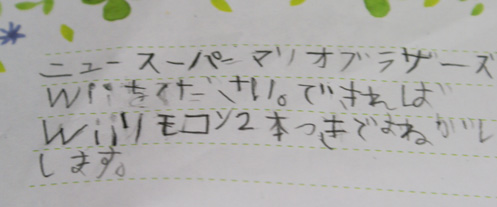 ニュースーパーマリオブラザーズ
Wiiをください。できれば
Wiiリモコン2本つきでおねがいし
します。